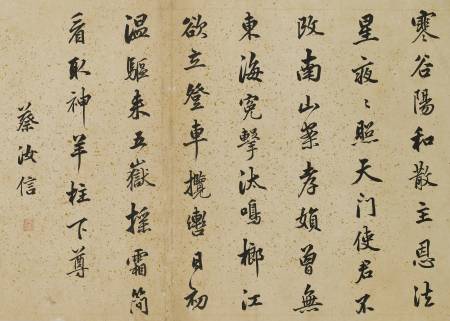 寒谷陽和散主恩法
星夜〻照天门使君不
改南山案孝媍曾無
東海寃擊汰鳴榔江
欲立登車攬轡日初
温驅来五嶽搖霜简
看取神羊柱下尊
蔡汝信